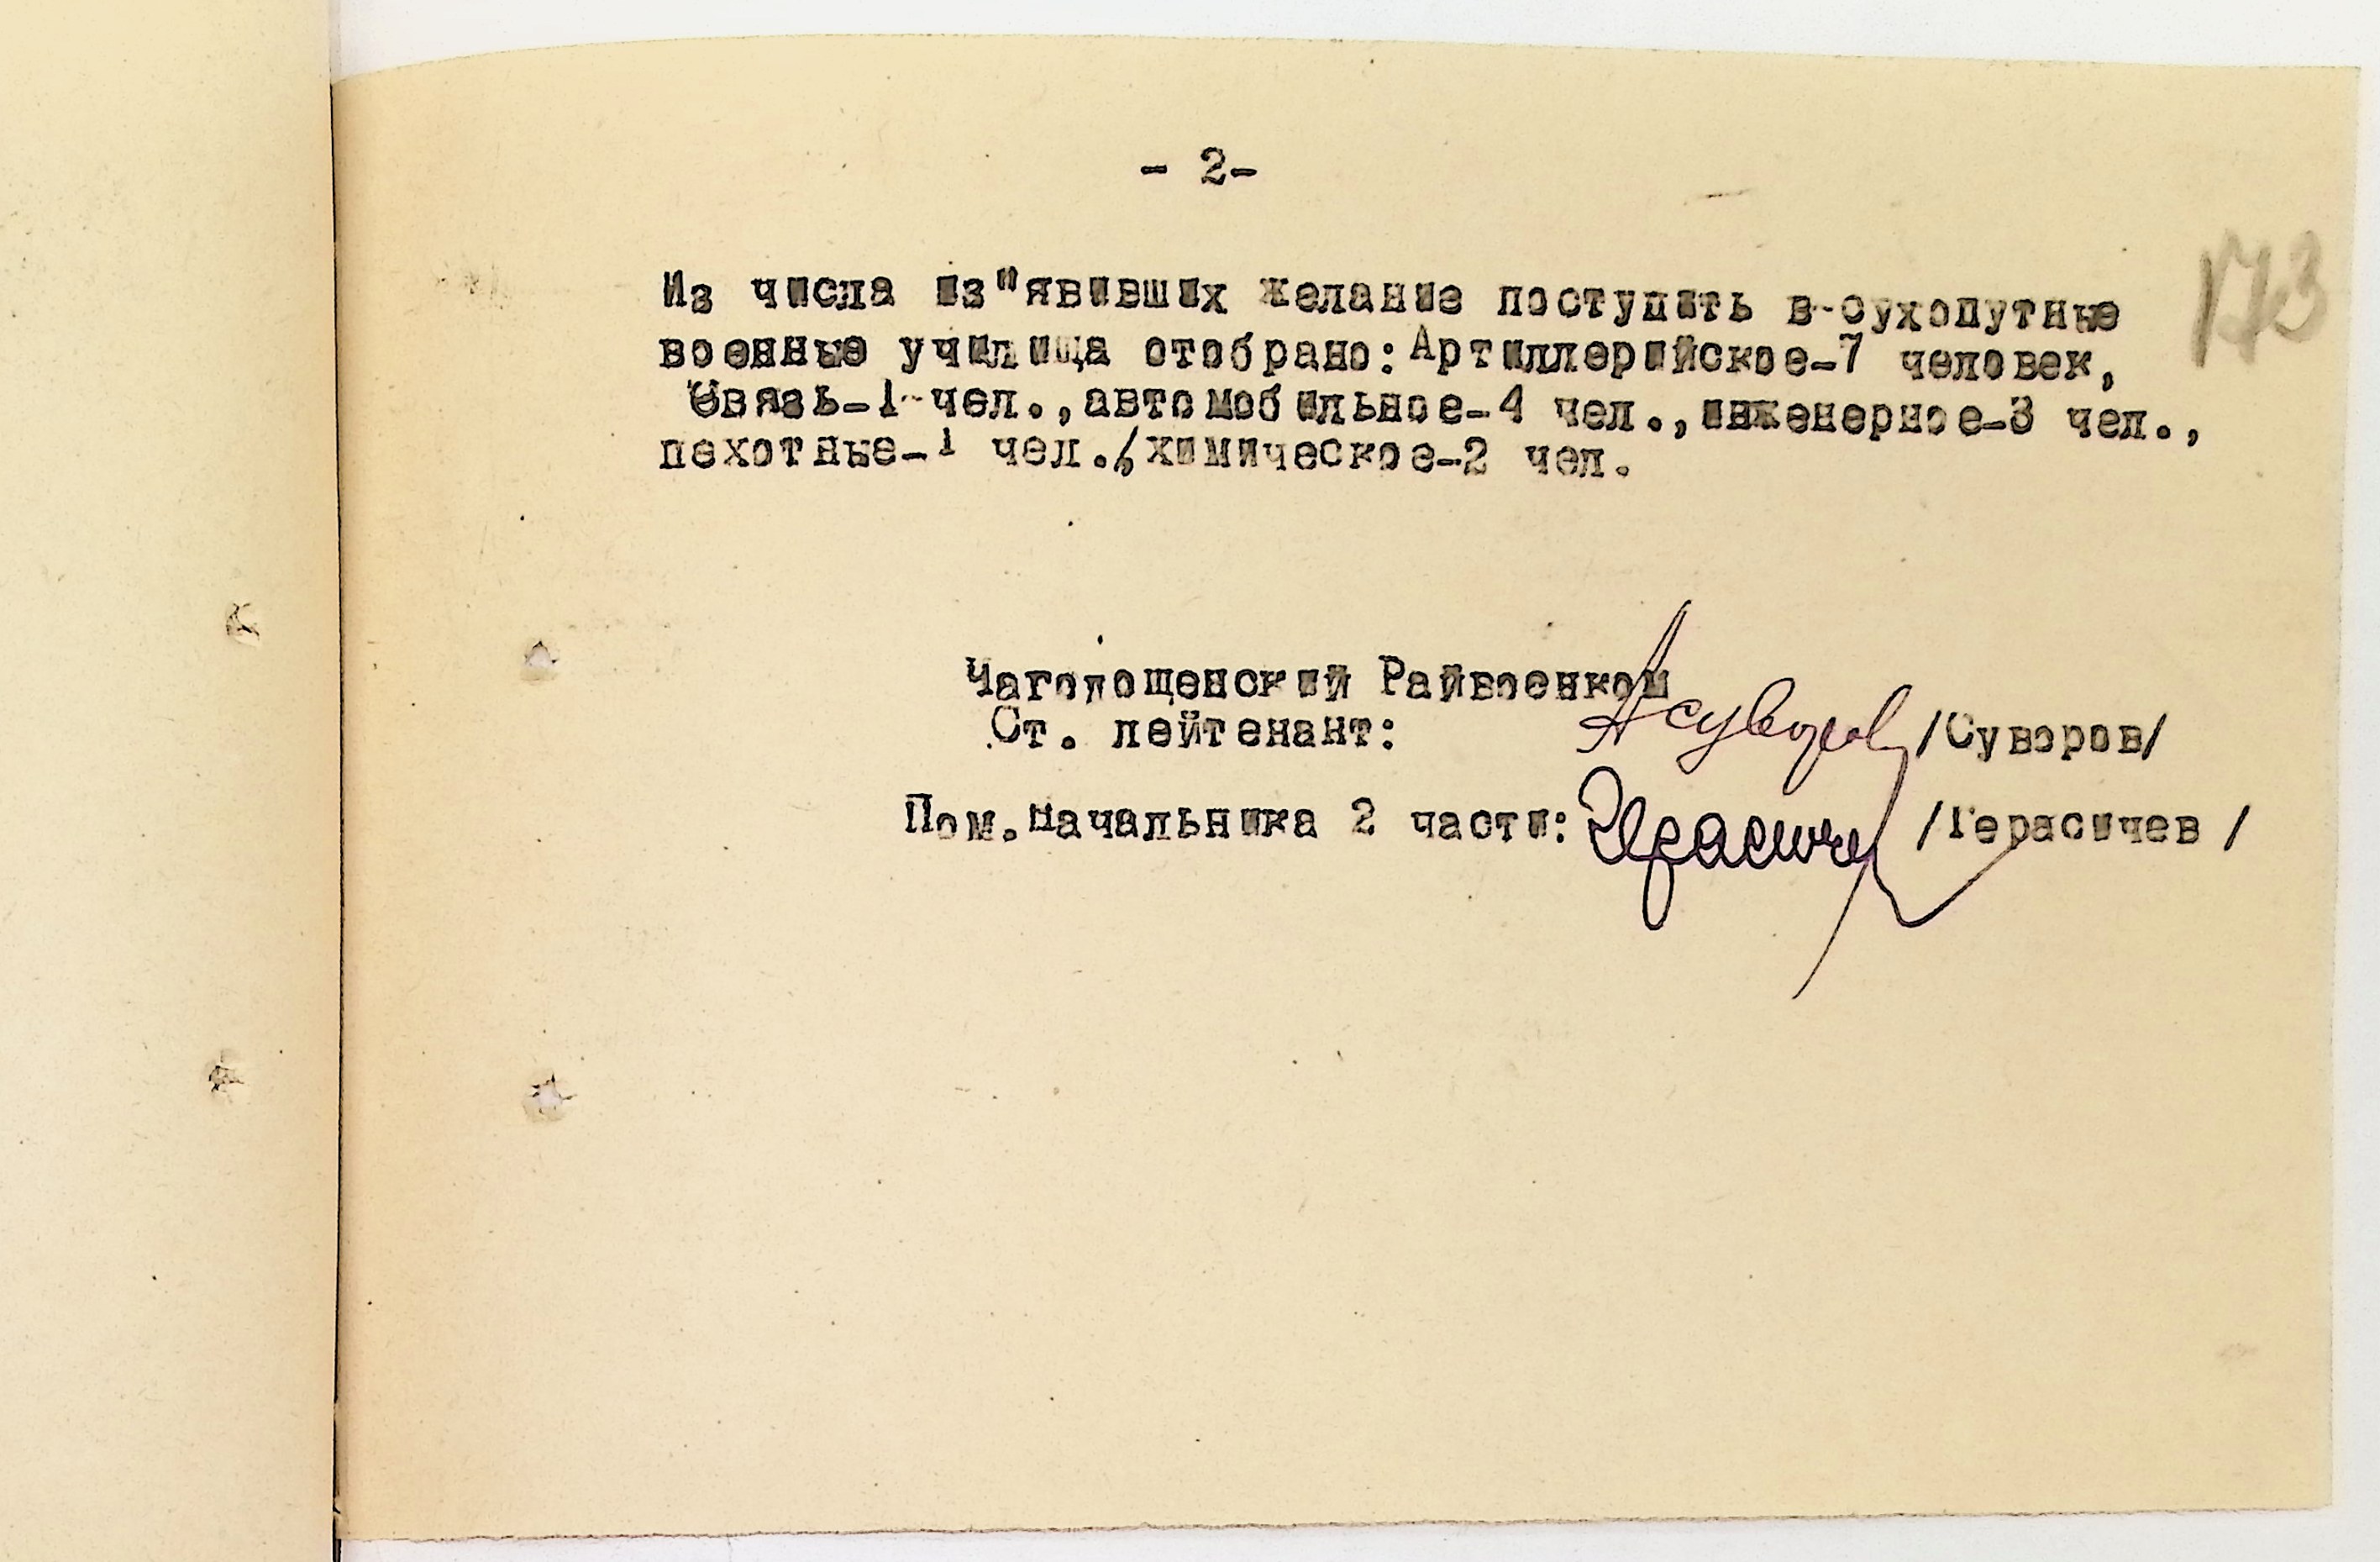 - 2-
173
Из числа из"явивших желание поступить в сухопутные
военные училища отобрано:Артиллерийское-7 человек,
Связь-1 чел.,автомобильное-4 чел.,инженерное-3 чел.,
пехотные-1 чел.,химическое-2 чел.
Чагодощенский Райвоенком
Ст. лейтенант: АСуворов /Суворов/
Пом.начальника 2 части: Герасичев /Герасичев /